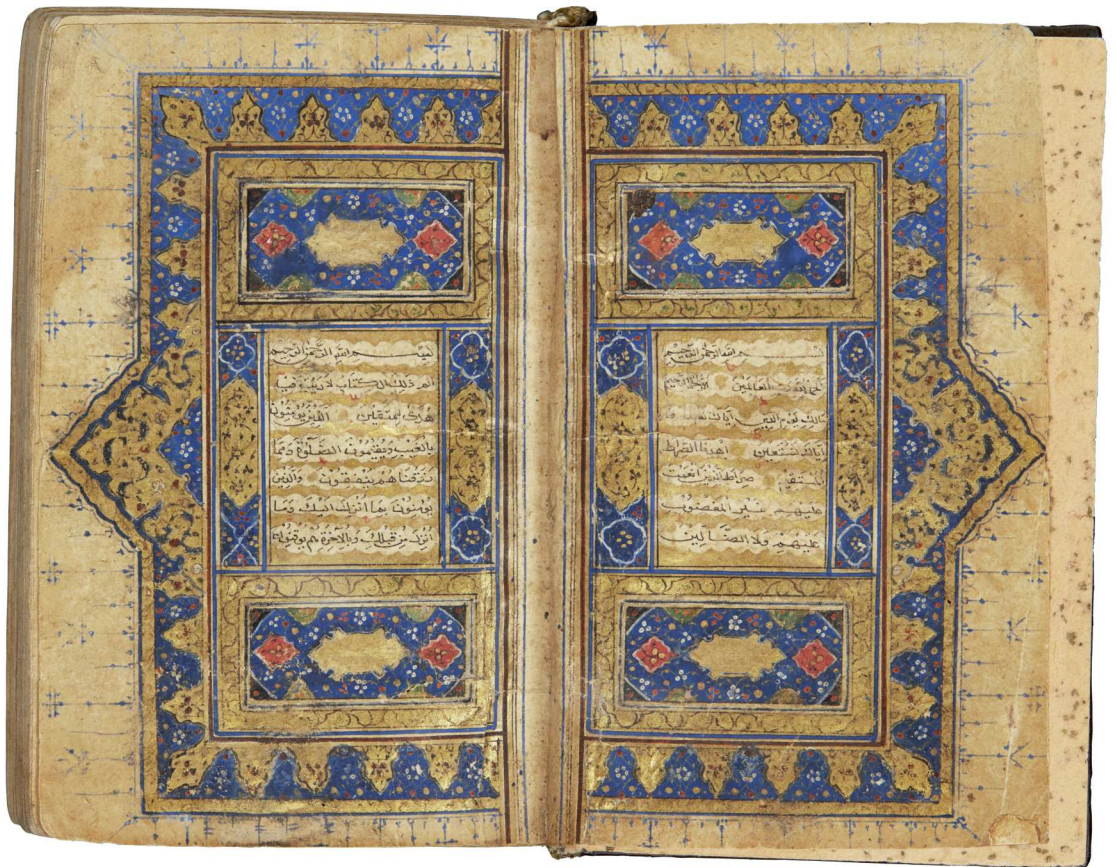 بسم الله الرحمن الرحيم
الحمد لله رب العالمين الرحمن الرحيم
مالك يوم الدين اياك نعبد و
اياك نستعين اهدنا الصراط
المستقيم صراط الذين انعمت
عليهم غير المغضوب
عليهم ولا الضالين
بسم الله الرحمن الرحيم
الم ذلك الكتاب لا ريب فيه
هدى للمتقين الذين يؤمنون
بالغيب ويقيمون الصلوة ومما
رزقناهم ينفقون والذين
يؤمنون بما انزل اليك وما
انزل من قبلك وبالاخرة هم يوقنون